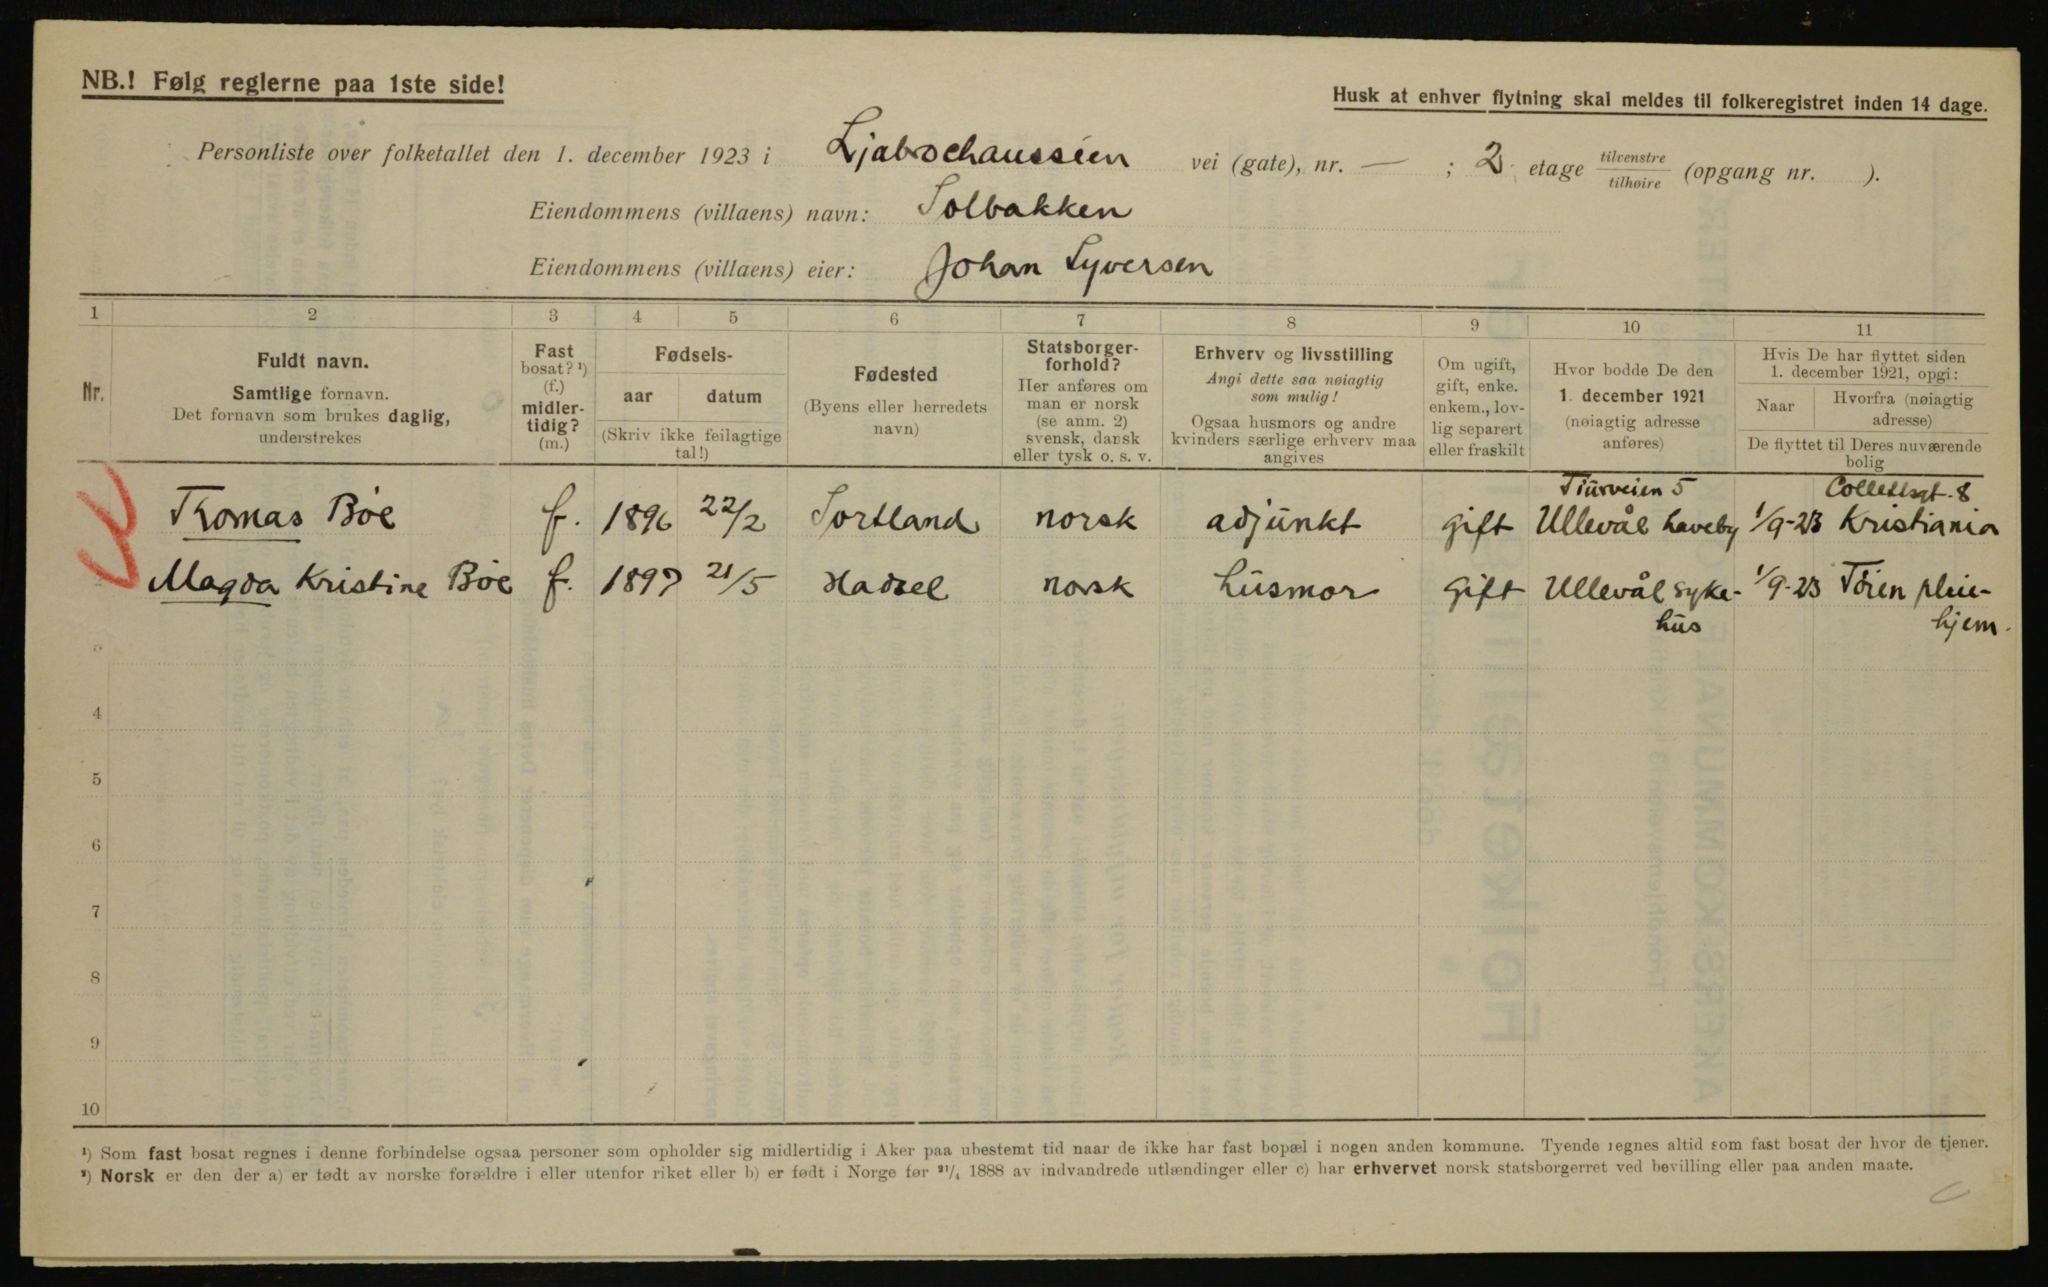 NB.! Følg reglerne paa 1ste side!
Husk at enhver flytning skal meldes til folkeregistret inden 14 dage.
Personliste over folketallet den 1. december 1923 i Ljabrochausséen vei (gate), nr. — ; 2 etage tilvenstre/tilhøire (opgang nr. ).
Eiendommens (villaens) navn: Solbakken
Eiendommens (villaens) eier: Johan Syversen
1 2 3 4 5 6 7 8 9 10 11
Nr.
Fuldt navn.
Samtlige fornavn.
Det fornavn som brukes daglig,
understrekes
Fast
bosat? ¹)
(f.)
midler-
tidig?
(m.)
Fødsels-
aar datum
(Skriv ikke feilagtige
tal!)
Fødested
(Byens eller herredets
navn)
Statsborger-
forhold?
Her anføres om
man er norsk
(se anm. 2)
svensk, dansk
eller tysk o. s. v.
Erhverv og livsstilling
Angi dette saa nøiagtig
som mulig!
Ogsaa husmors og andre
kvinders særlige erhverv maa
angives
Om ugift,
gift, enke.
enkem., lov-
lig separert
eller fraskilt
Hvor bodde De den
1. december 1921
(nøiagtig adresse
anføres)
Hvis De har flyttet siden
1. december 1921, opgi:
Naar
Hvorfra (nøiagtig
adresse)
De flyttet til Deres nuværende
bolig
Tiurveien 5 Collettsgt. 8
Thomas Bøe f. 1896 22/2 Sortland norsk adjunkt gift Ullevål haveby 1/9-23 Kristiania
Magda Kristine Bøe f. 1897 21/5 Hadsel norsk husmor gift Ullevål syke- 1/9-23 Tøien pleie-
hus hjem.
3
4
5
6
7
8
9
10
¹) Som fast bosat regnes i denne forbindelse ogsaa personer som opholder sig midlertidig i Aker paa ubestemt tid naar de ikke har fast bopæl i nogen anden kommune. Tyende regnes altid som fast bosat der hvor de tjener.
²) Norsk er den der a) er født av norske forældre i eller utenfor riket eller b) er født i Norge før ²¹/₄ 1888 av indvandrede utlændinger eller c) har erhvervet norsk statsborgerret ved bevilling eller paa anden maate.